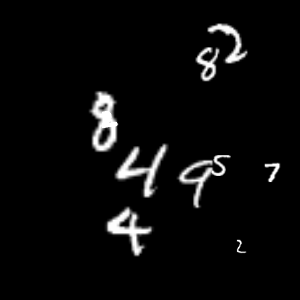 8 2
8
4 9 5 7
4 2